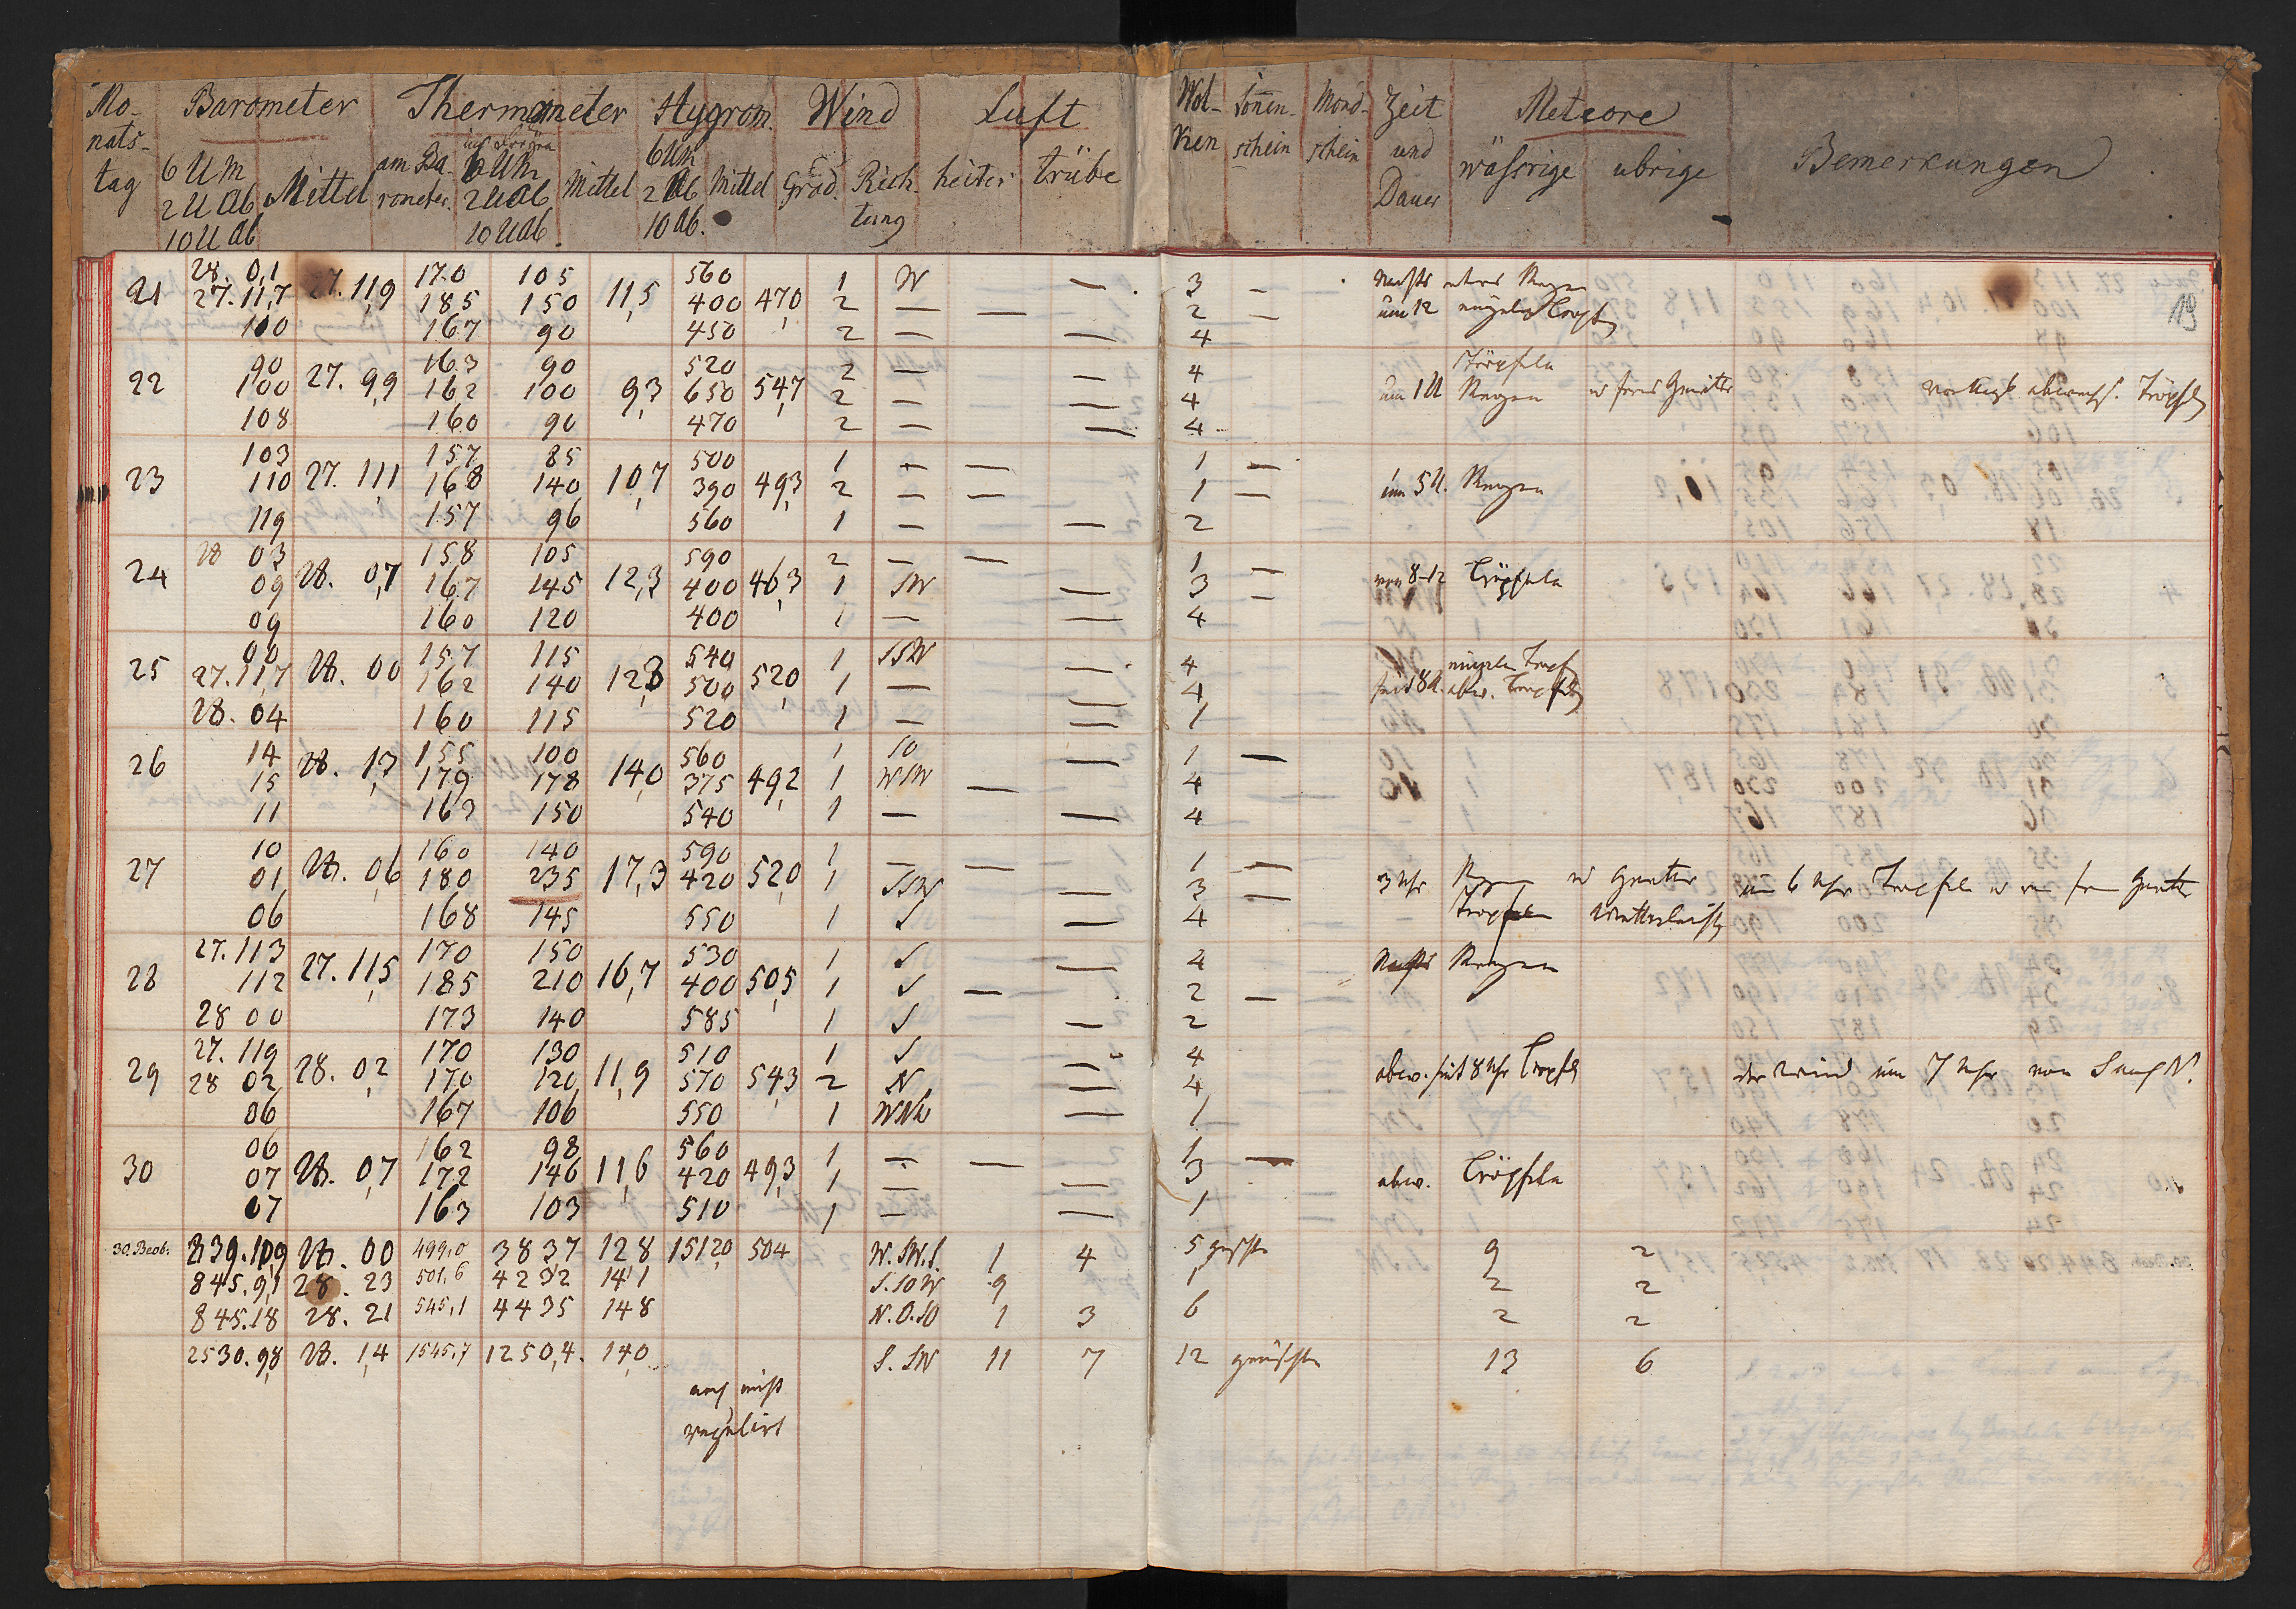 Mo- Barometer Thermometer Hygrom. Wind Luft Wol- Sonnen- Mond- Zeit Meteore
nats- ken schein schein und
tag 6 U M Mittel am Ba- 6 U M Mittel 6 U M Mittel Grad. Rich- heiter trübe Dauer wässrige übrige Bemerkungen
2 U Ab rometer. 2 U Ab 2 Ab tung
10 U Ab 10 U Ab. 10 Ab.
19
28. 0,1 170 105 560 1 W — 3 — Nachts etwas Regen
21 27.11,7 27.11,9 185 150 11,5 400 470 2 — — 2 — um 12 einzelne Tropfen
100 167 90 450 2 — — 4
90 163 90 520 2 — — 4 Tröpfeln
22 100 27. 9,9 162 100 9,3 650 547 2 — — 4 um 1 U Regen
108 160 90 470 2 — — 4
103 157 85 500 1 — — 1 —
23 110 27. 11,1 168 140 10,7 390 49,3 2 — — 1 — um 5 U. Regen
119 157 96 560 1 — — 2
28 03 158 105 590 2 — — 1 —
24 09 28. 0,7 167 145 12,3 400 46,3 1 SW — 3 — von 8-12 Tröpfeln
09 160 120 400 1 — — 4
00 157 115 540 1 SSW — 4 einzelne Tropf
25 27.11,7 28. 00 162 140 12,3 500 520 1 — — 4 seit 8 U. abw. Tropfeln
28. 04 160 115 520 1 — — 1
14 155 100 560 1 SO — 1 —
26 15 28. 1,3 179 178 14,0 375 49,2 1 WSW — 4
11 163 150 540 1 — — 4
10 160 140 590 1 — — 1 —
27 01 28. 0,6 180 235 17,3 420 520 1 SSW — 3 — 3 Uhr Regen u Gewitter um 6 Uhr Tropfeln
06 168 145 550 1 S — 4 Tropfeln Wetterleucht
27.113 170 150 530 1 S — 4
28 112 27. 11,5 185 210 16,7 400 50,5 1 S — 2 — Nachts Regen
28 00 173 140 585 1 S — 2
27. 119 170 130 510 1 S — 4
29 28 02 28. 0,2 170 120 11,9 570 54,3 2 N — 4 abw. seit 8 Uhr Tropfeln der Wind um 7 Uhr von S auf N.
06 167 106 550 1 WNW — 1
06 162 98 560 1 — — 1
30 07 28. 0,7 172 146 11,6 420 49,3 1 — — 3 — abw. Tröpfeln
07 163 103 510 1 — — 1
30. Beob. 839.10,9 28. 00 499,0 3837 128 15120 504 W. SW. S. 1 4 5 gewischt 9 2
845.9,1 28. 23 501,6 4232 141 S. SO W 9 1 2 2
845.18 28. 21 545,1 4435 148 N. O. SO 1 3 6 2 2
2530.98 28. 1,4 1545,7 1250,4. 140 S. SW 11 7 12 gemischte 13 6
noch nicht
regulirt